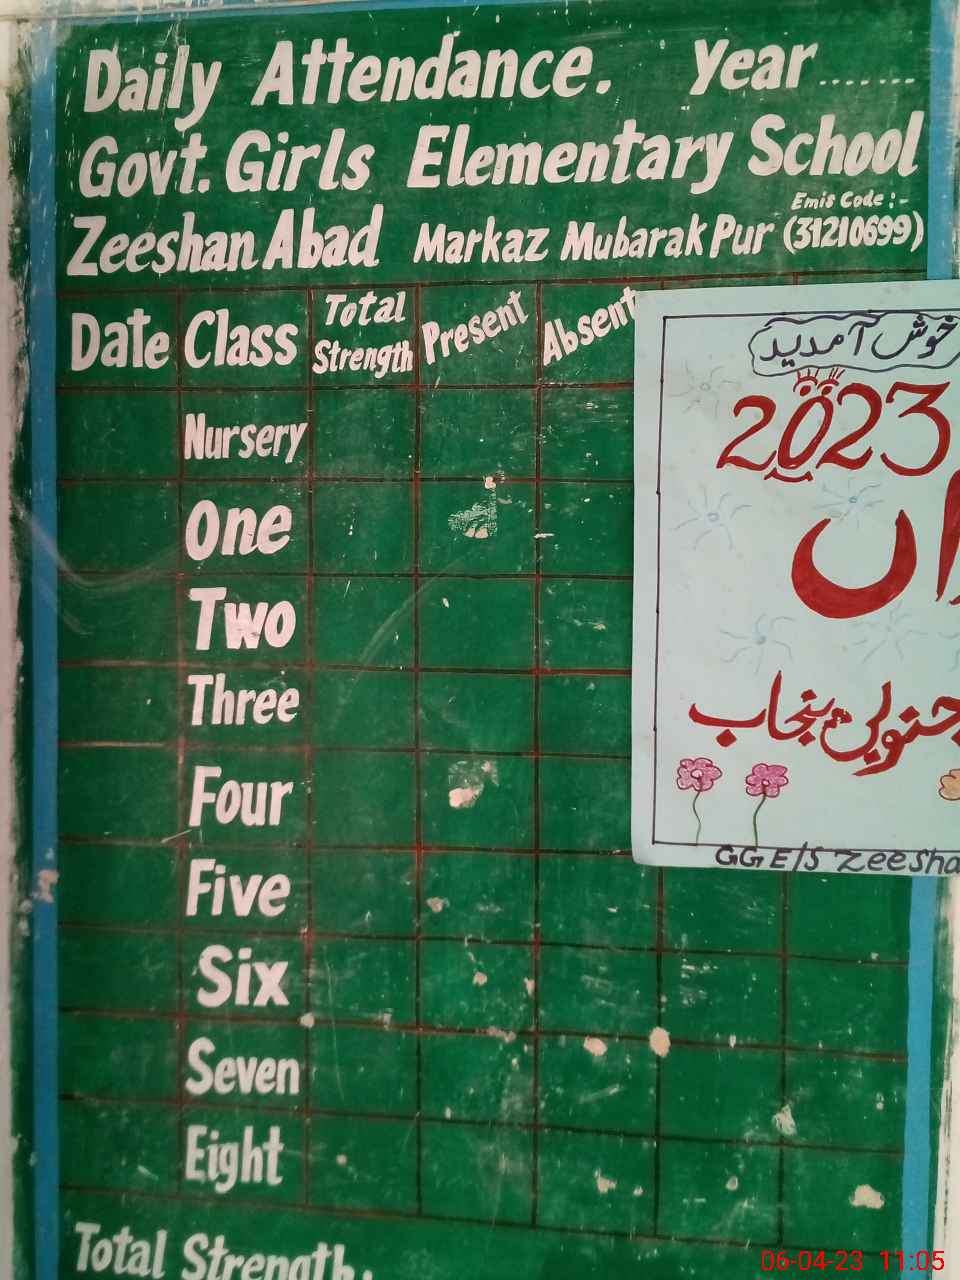 Daily Attendance. Year.......
Govt. Girls Elementary School
Emis Code :-
Zeeshan Abad Markaz Mubarak Pur (31210699)
Date Class Total Strength Present Absent
Nursery
One
Two
Three
Four
Five
Six
Seven
Eight
Total Strength.
خوش آمدید
2023
جنوبی پنجاب
GGE/S Zeesha
06-04-23 11:05